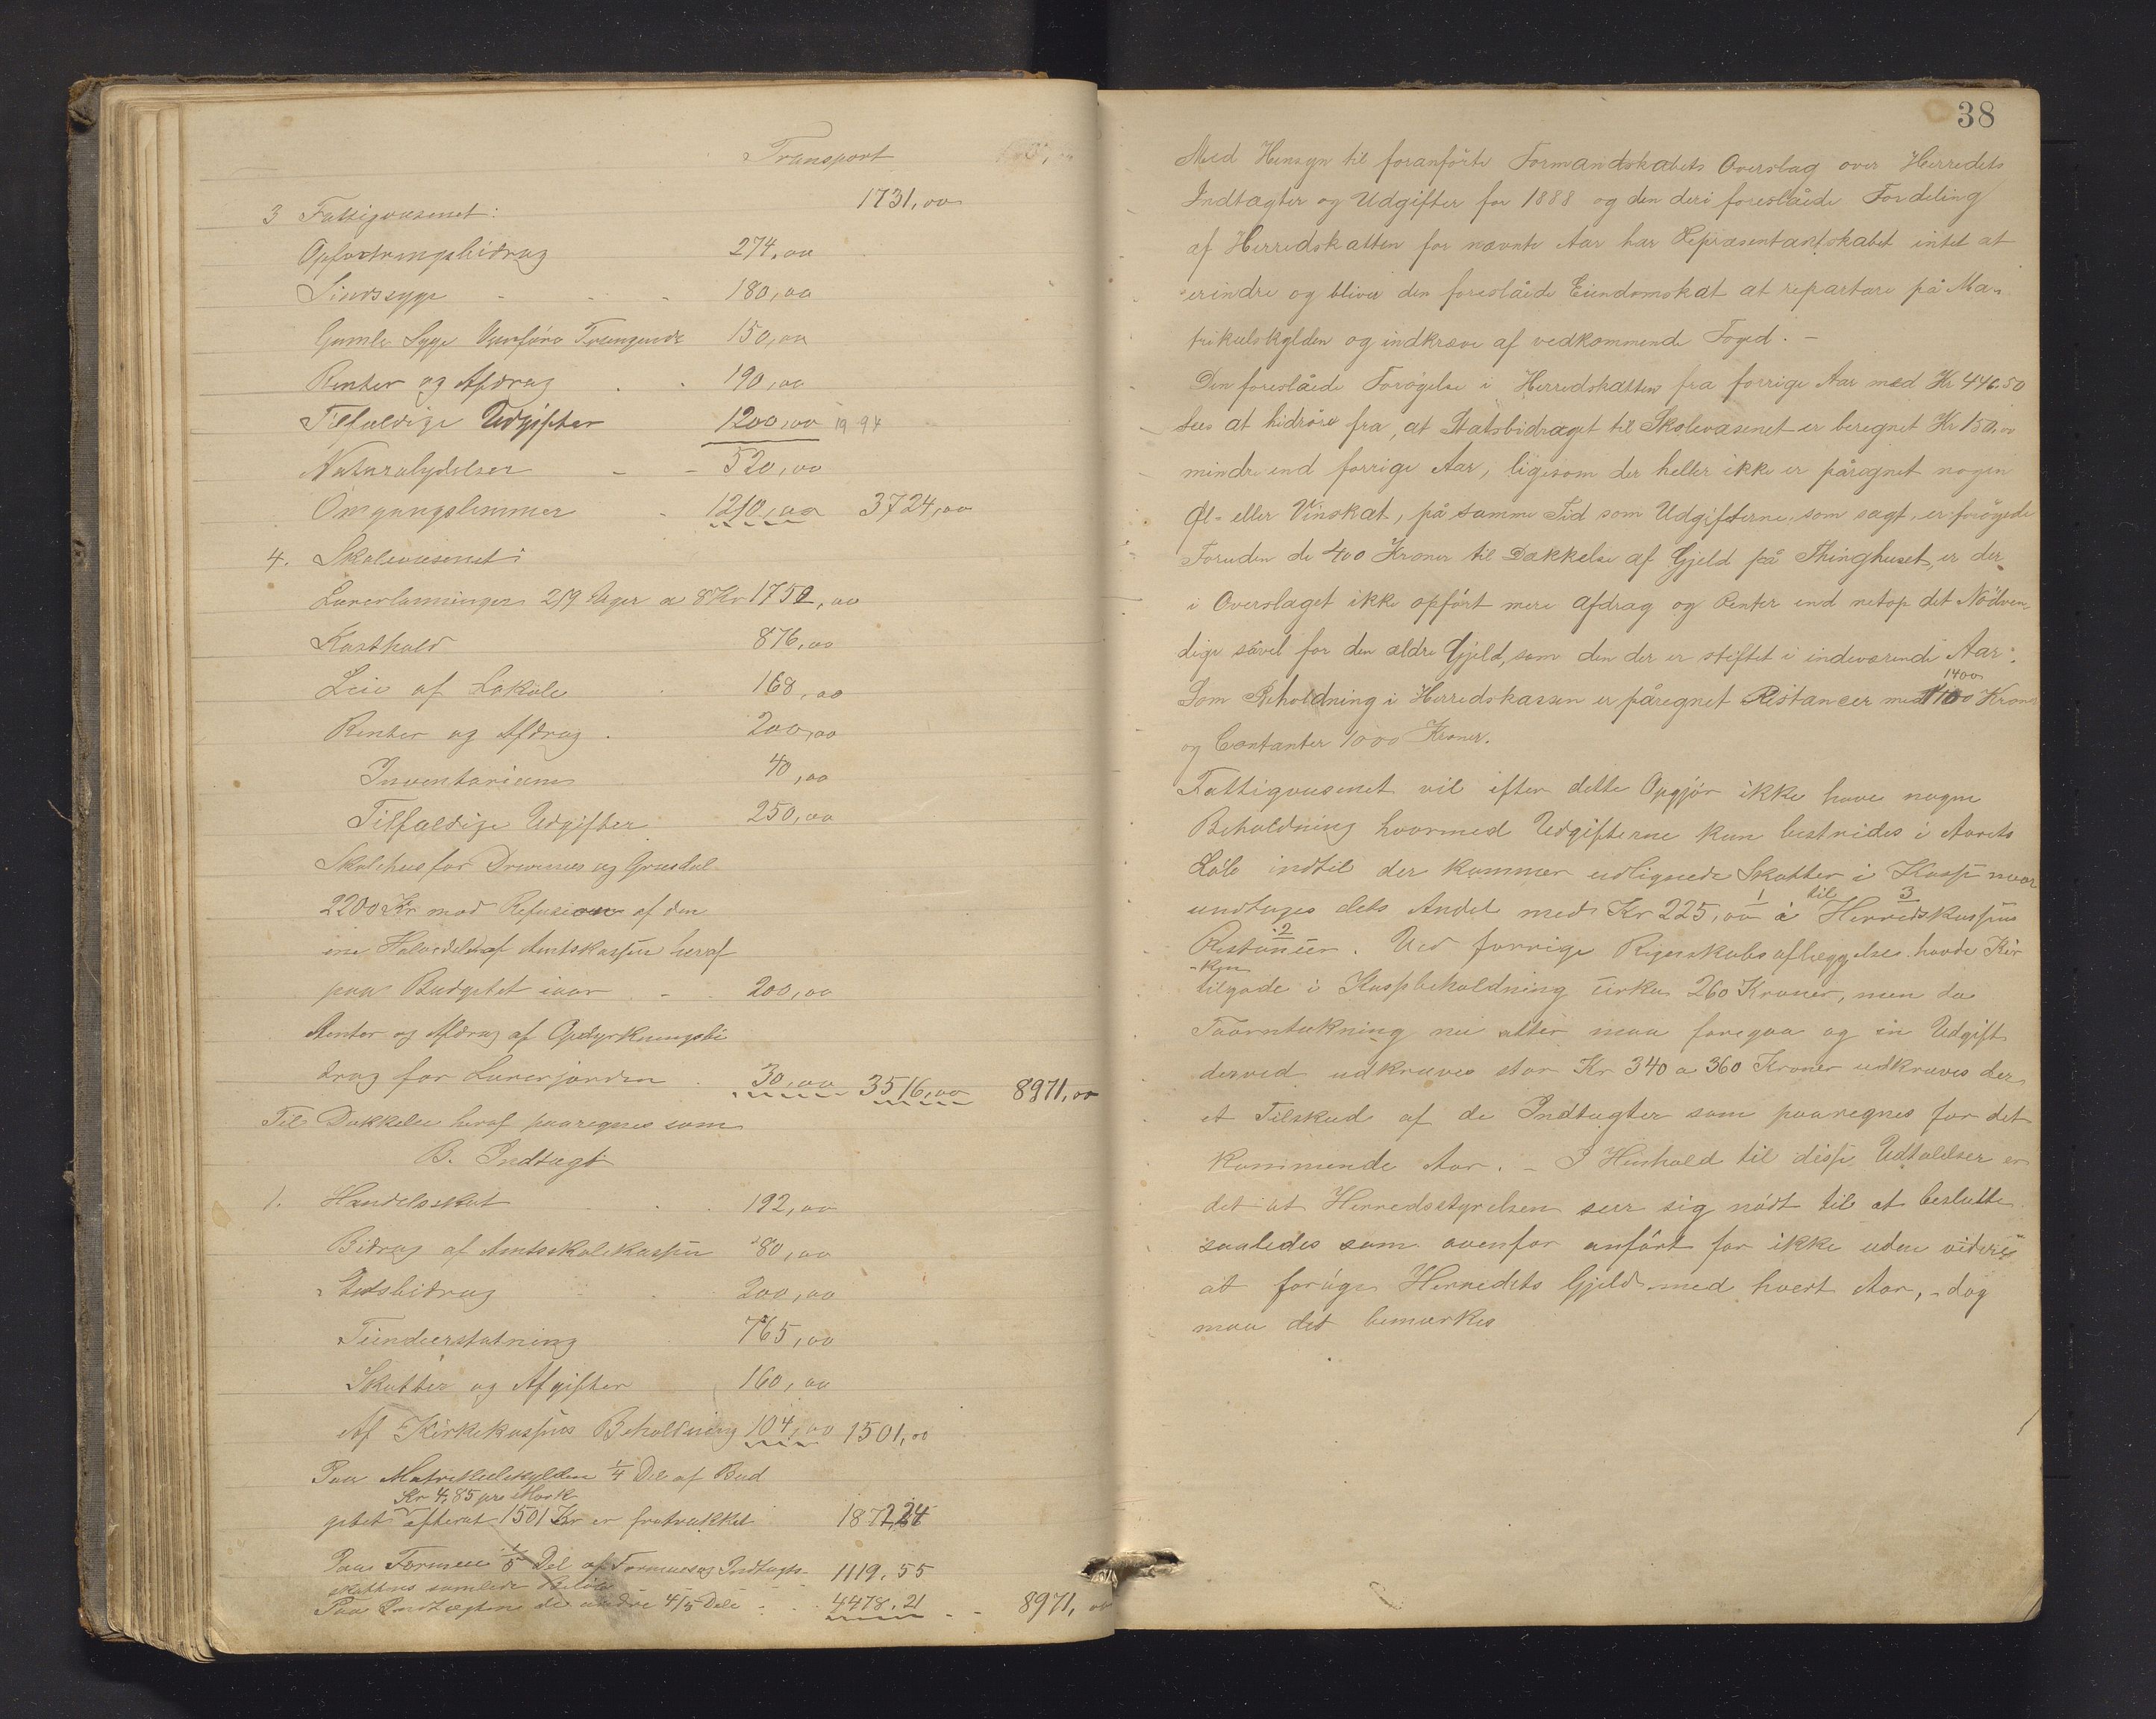 Transport
1731,00
3 Fattigvæsenet:
Opfostringsbidrag 274,00
Sindssyge - - - 180,00
Gamle Syge Vanføre Trængende 150,00
Renter og Afdrag . . 190,00
Tilfældige Udgifter 1200,00 1994
Naturalydelser - - 520,00
Omgangslemmer - 1210,00 3724,00
4. Skolevæsenet:
Lærerlønninger 219 Uger a 8 Kr 1752,00
Kosthold 876,00
Leie af Lokale . 168,00
Renter og Afdrag . 200,00
Inventarium 40,00
Tilfældige Udgifter 250,00
Skolehus for Drevsnes og Grusdal
2200 Kr mod Refusion af den
ene Halvdel af Amtskassen heraf
paa Budgetet iaar . - . 200,00
Renter og Afdrag af Opdyrkningsbi
drag for Lærerjorden . 30,00 3516,00 8971,00
Til Dækkelse heraf paaregnes som
B. Indtægt
1. Handelsskat . . . 192,00
Bidrag af Amtsskolekassen 80,00
Statsbidrag 200,00
Tiendeerstatning 765,00
Skatter og Afgifter 160,00
Af Kirkekassens Beholdning 104,00 1501,00
Paa Matrikulskylden 1/4 Del af Bud
Kr 4,85 pre Mark
getet efterat 1501 Kr er fratrukket 1872,24
Paa Formue 1/5 Del af Formues og Indtægts- 1119,55
skattens samlede Beløb
Paa Indtægten de andre 4/5 Dele - - 4478,21 - - 8971,00
38
Med Hensyn til foranførte Formandskabets Overslag over Herredets
Indtægter og Udgifter for 1888 og den deri foreslåede Fordeling
af Herredskatten for nævnte Aar har Repræsentantskabet intet at
erindre og bliver den foreslåede Eiendomskat at repartere på Ma-
trikulskylden og indkræve af vedkommende Foged. -
Den foreslåede Forøgelse i Herredskatten fra forrige Aar med Kr 446.50
sees at hidrøre fra, at Statsbidraget til Skolevæsenet er beregnet Kr 150,00
mindre end forrige Aar, ligesom der heller ikke er påregnet nogen
Øl- eller Vinskat, på samme Tid som Udgifterne, som sagt, er forøgede
Foruden de 400 Kroner til Dækkelse af Gjeld på Thinghuset, er der
i Overslaget ikke opført mere afdrag og Renter end netop det Nødven-
dige såvel for den ældre Gjeld, som den der er stiftet i indeværende Aar.
1400
Som Beholdning i Herredskassen er påregnet Restancer med 1100 Kroner
og Contanter 1000 Kroner.
Fattigvæsenet vil efter dette Opgjør ikke have nogen
Beholdning hvormed Udgifterne kan bestrides i Aarets
Løb indtil der kommer udlignede Skatter i Kasse naar
undtages dets Andel med Kr 225,00 i Herredskassens
1 til 3
2
Restancer. Ved forrige Regnskabsaflæggelse havde Kir
-ken
tilgode i Kassebeholdning cirka 260 Kroner, men da
Taarntækning nu atter maa foregaa og en Udgift
derved udkræves stor Kr 340 a 360 Kroner udkræves der
et Tilskud af de Indtægter som paaregnes for det
kommende Aar. - I Henhold til disse Udtalelser er
det at Herredsstyrelsen seer sig nødt til at beslutte
saaledes som ovenfor anført for ikke uden videre
at forøge Herredets Gjeld med hvert Aar, - dog
maa det bemærkes